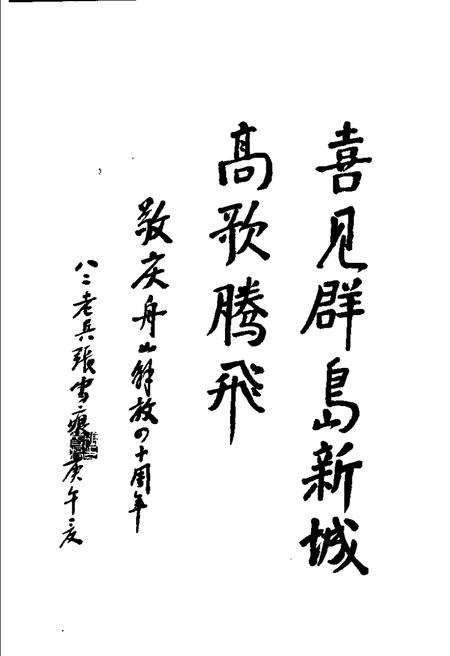 喜見群島新城
高歌腾飛
敬庆舟山解放四十周年
八二老兵張雪痕 庚午夏